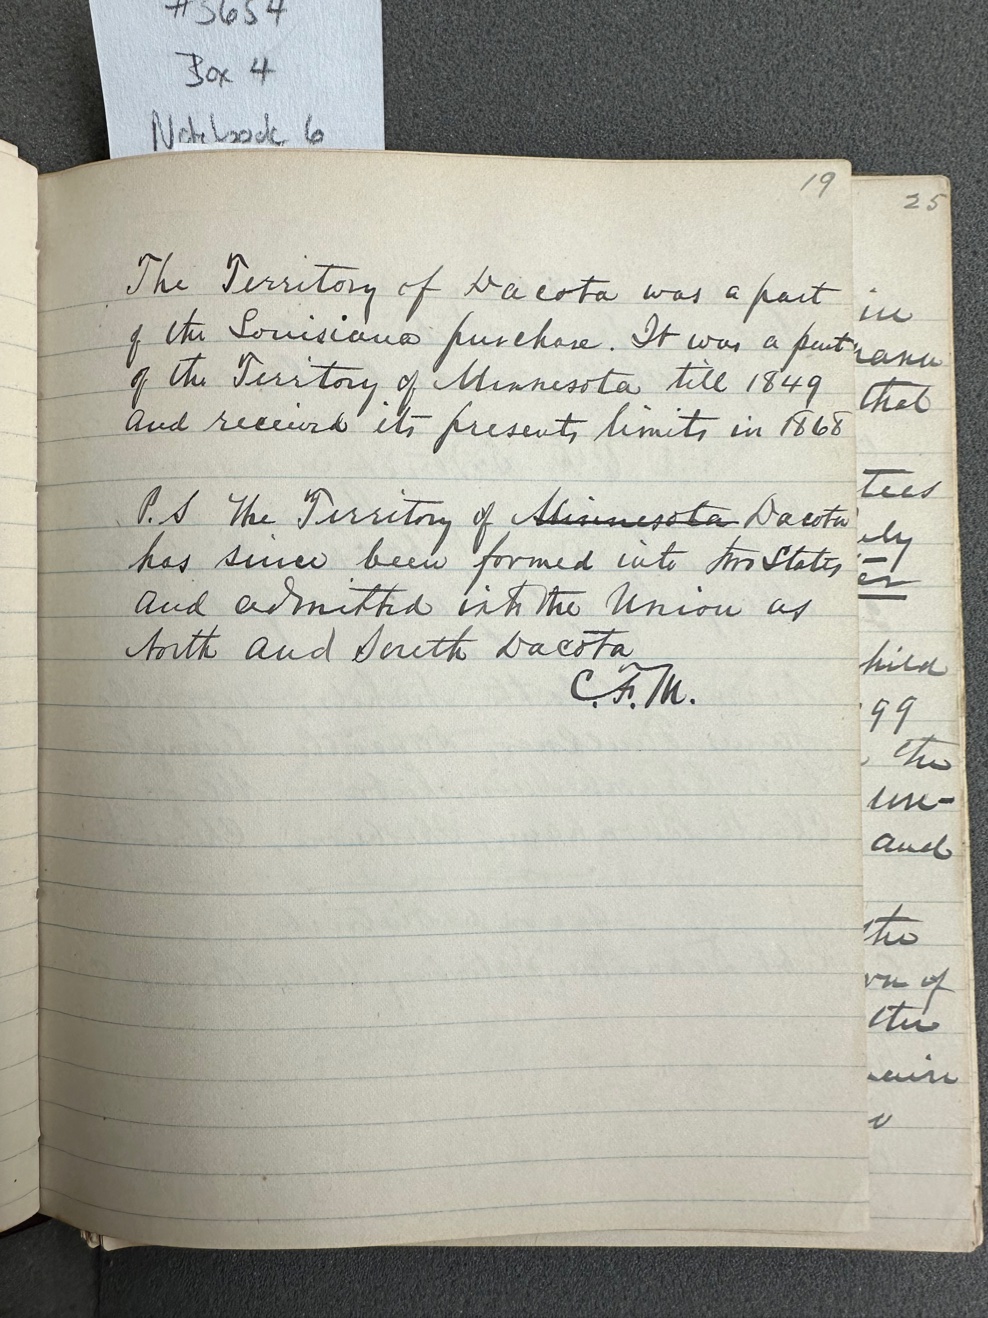 #3654
Box 4
Notebook 6
19
The Territory of Dacota was a part
of the Louisiana purchase. It was a part
of the Territory of Minnesota till 1849
and received its presents limits in 1868
P.S the Territory of Minnesota Dacota
has since been formed into two States
and admitted into the Union as
North and South Dacota
C. F. M.
25
in
that
tees
hild
99
the
une-
and
the
of
the